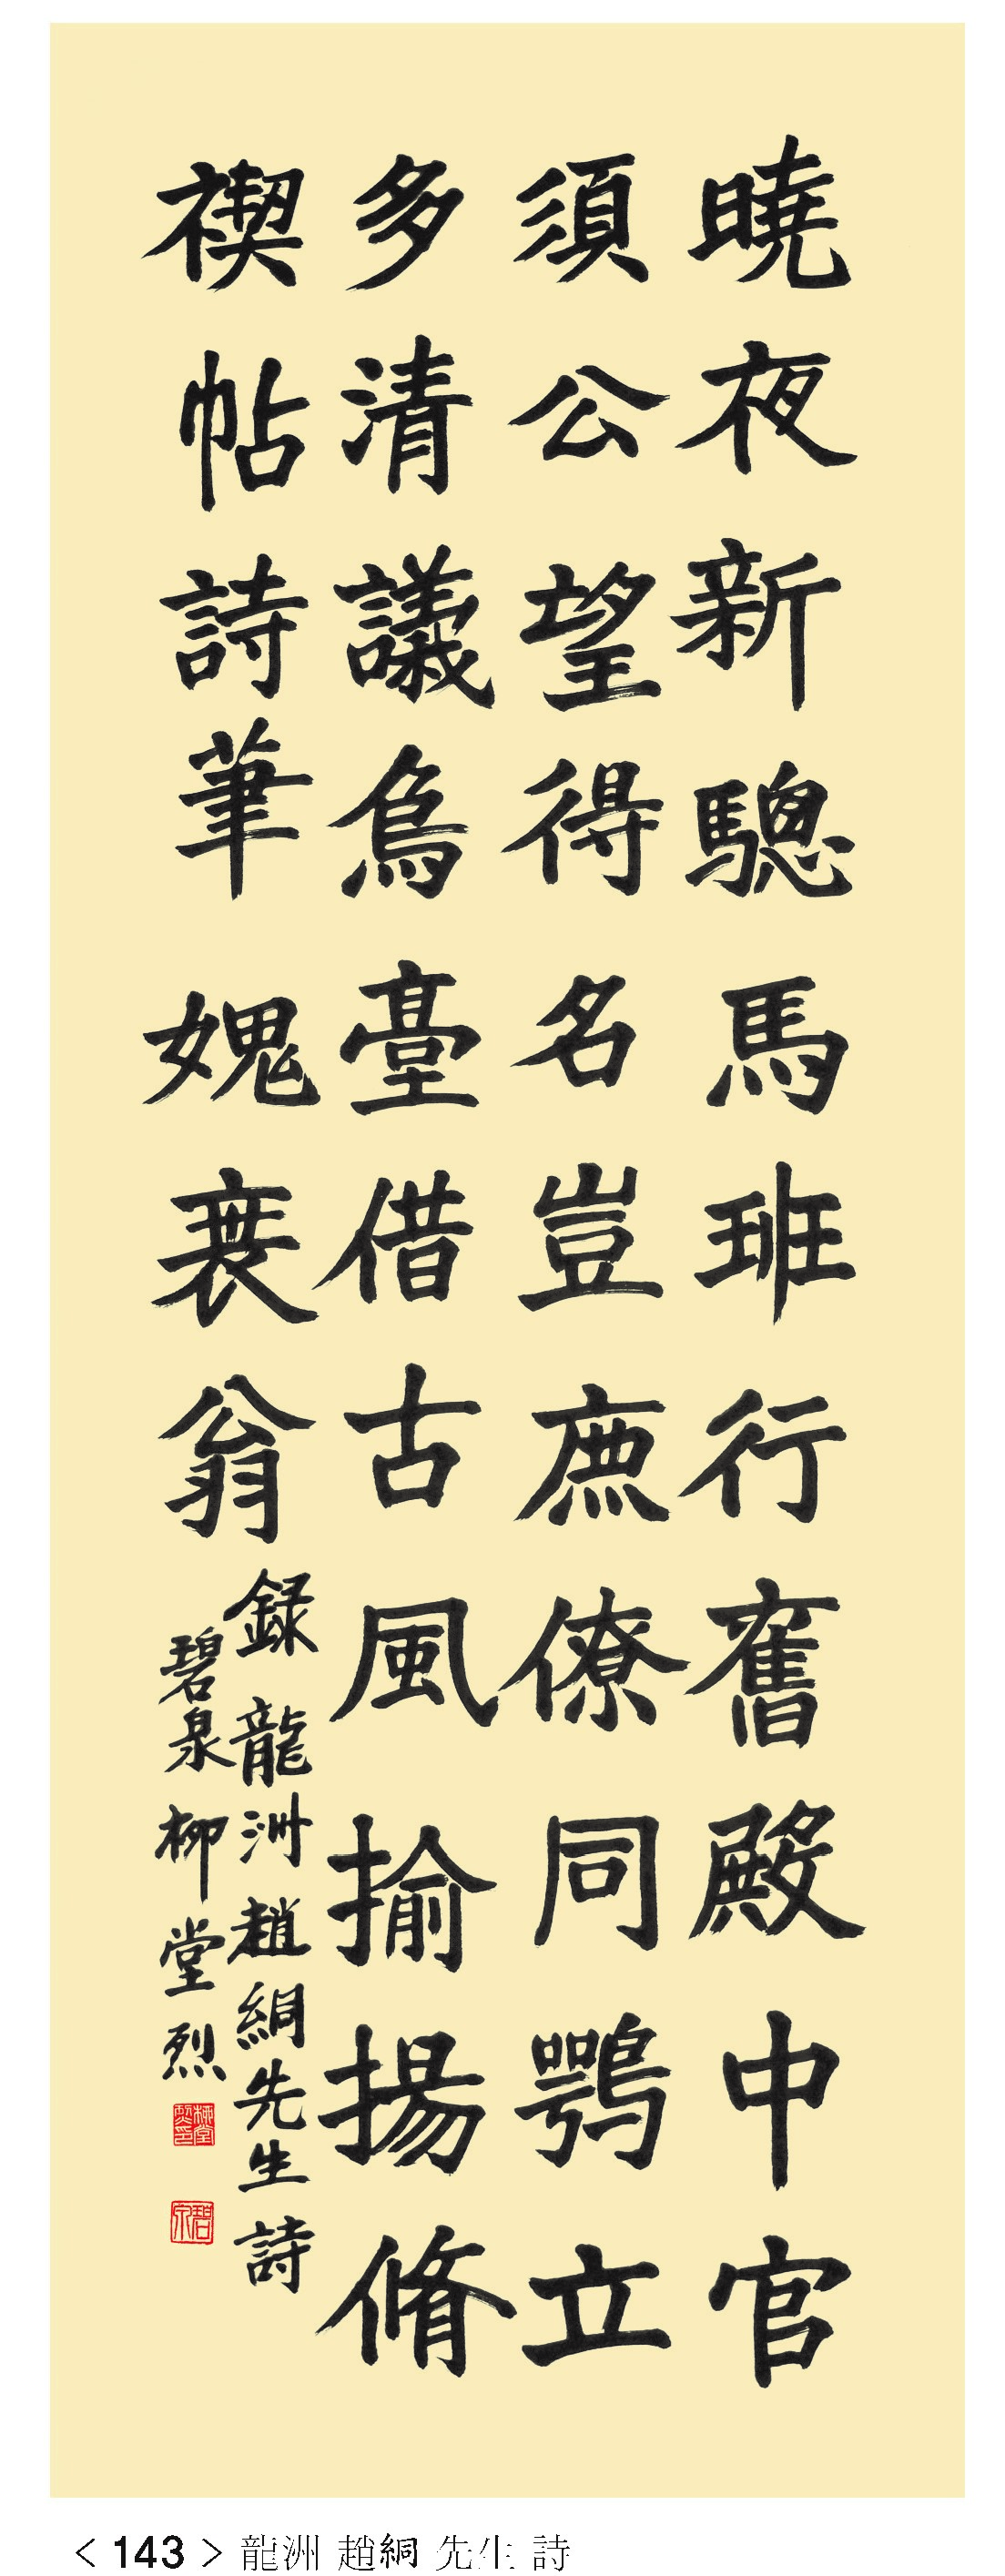 曉夜新驄馬班行奮殿中官
須公望得名豈庶僚同鶚立
多清議烏臺借古風揄揚脩
禊帖詩筆媿衰翁
録龍洲趙絅先生詩
碧泉柳堂烈
柳堂烈印
碧泉
< 143 > 龍洲 趙絅 先生 詩